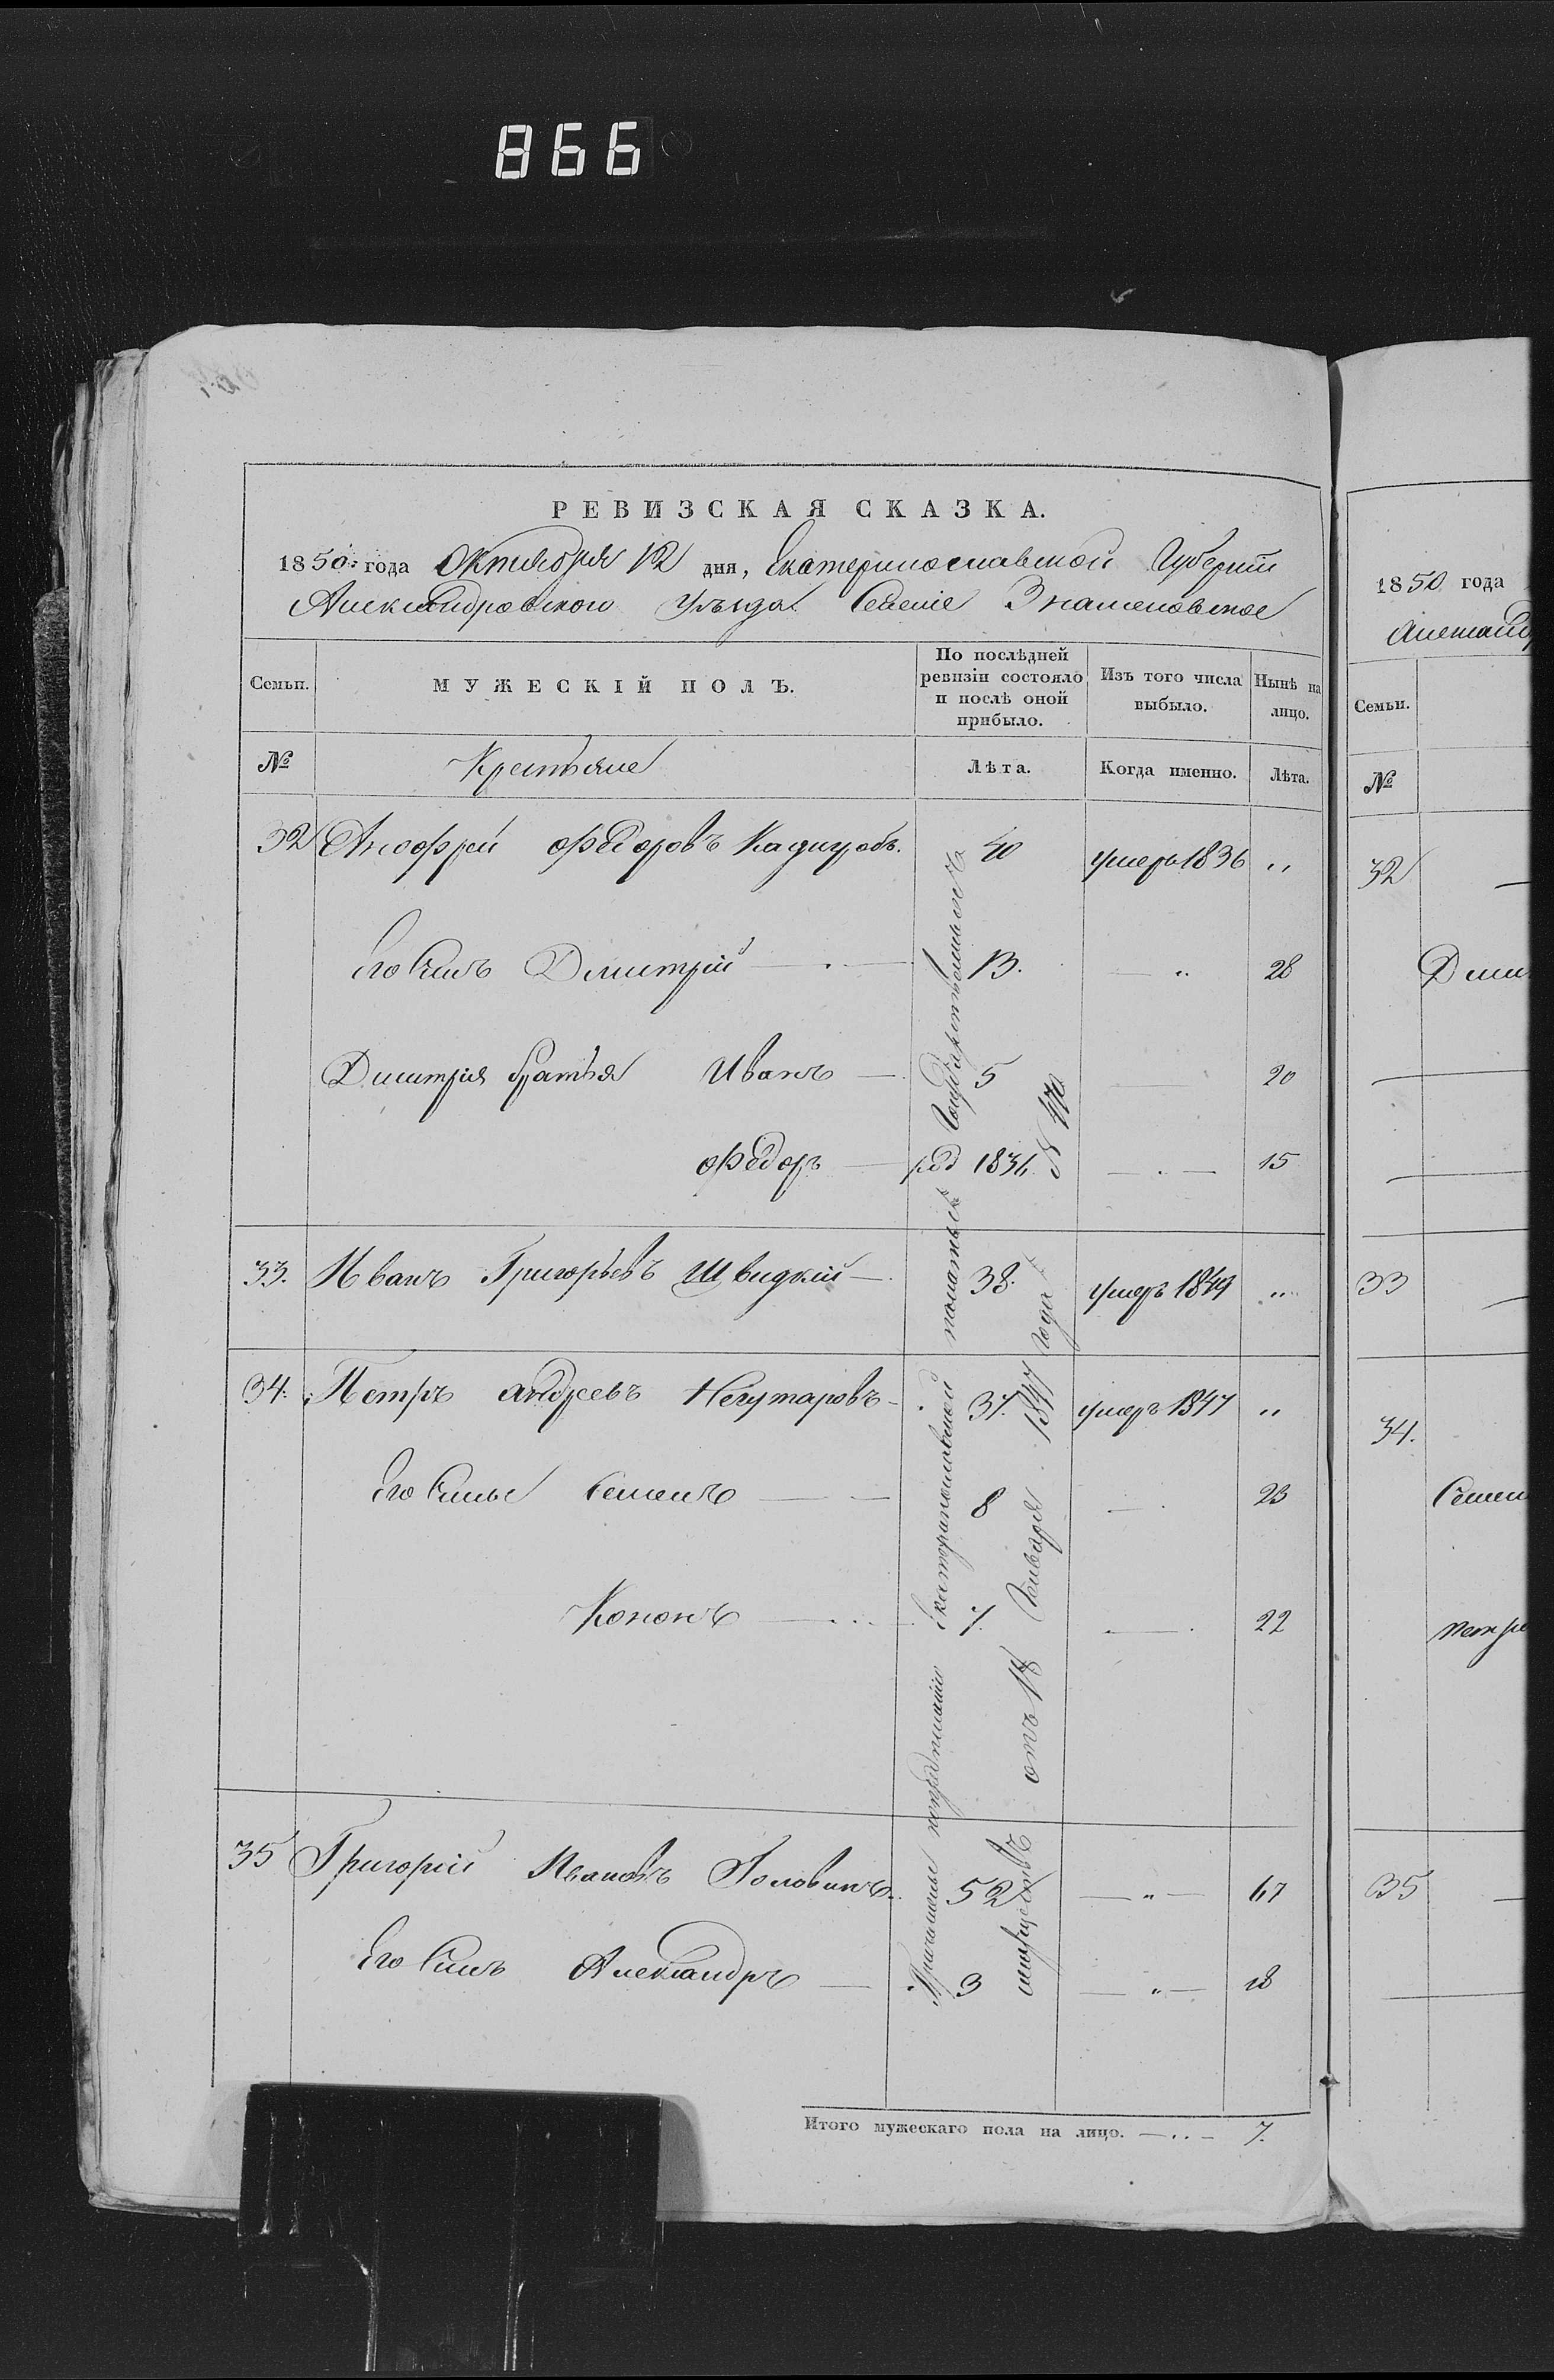 866
РЕВИЗСКАЯ СКАЗКА.
1850 года Октября 12 дня, Екатеринославской Губерніи
Александровскаго Уѣзда Селеніе Знаменовское
Семьи. МУЖЕСКІЙ ПОЛЪ. По послѣдней ревизіи состояло и послѣ оной прибыло. Изъ того числа выбыло. Нынѣ на лицо.
№ Крестьяне Лѣта. Когда именно. Лѣта.
32 Анофрей Федоровъ 40 умеръ 1836 "
Его Сынъ Дмитрій 13. " 28
Дмитрія братья Иванъ 5 20
Федоръ род 1836 15
33. Иванъ Григорьевъ Швидкій 38. умеръ 1849 "
34. Петръ Андреевъ 37. умеръ 1847 "
Его Сыны Семенъ 8 23
Кононъ 7. 22
35 Григорій Ивановъ Головинъ 52 " 67
Его Сынъ Александръ 3 " 18
Екатеринославской палаты Государственныхъ
имуществъ отъ 18 Января 1847 года № 170
Итого мужескаго пола на лицо. 7.
1850 года
Александ
Семьи.
№
32
Дми
33
34.
Семен
Петр
35